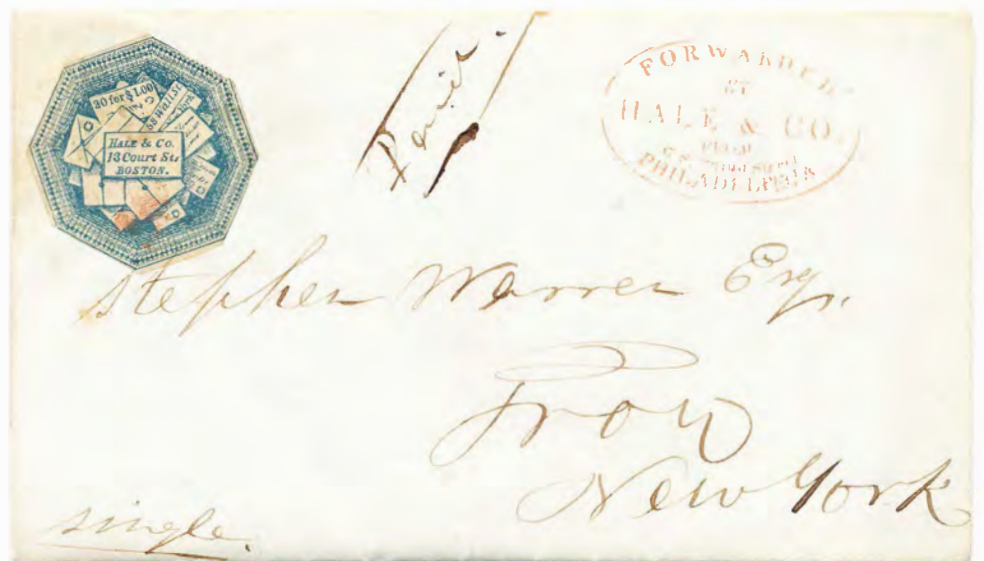 20 for $1.00
58 Wall St
HALE & CO.
13 Court St,
BOSTON.
FORWARDED
BY
HALE & CO.
FROM
PHILADELPHIA
Stephen Warren Esq.
Troy
New York
single.